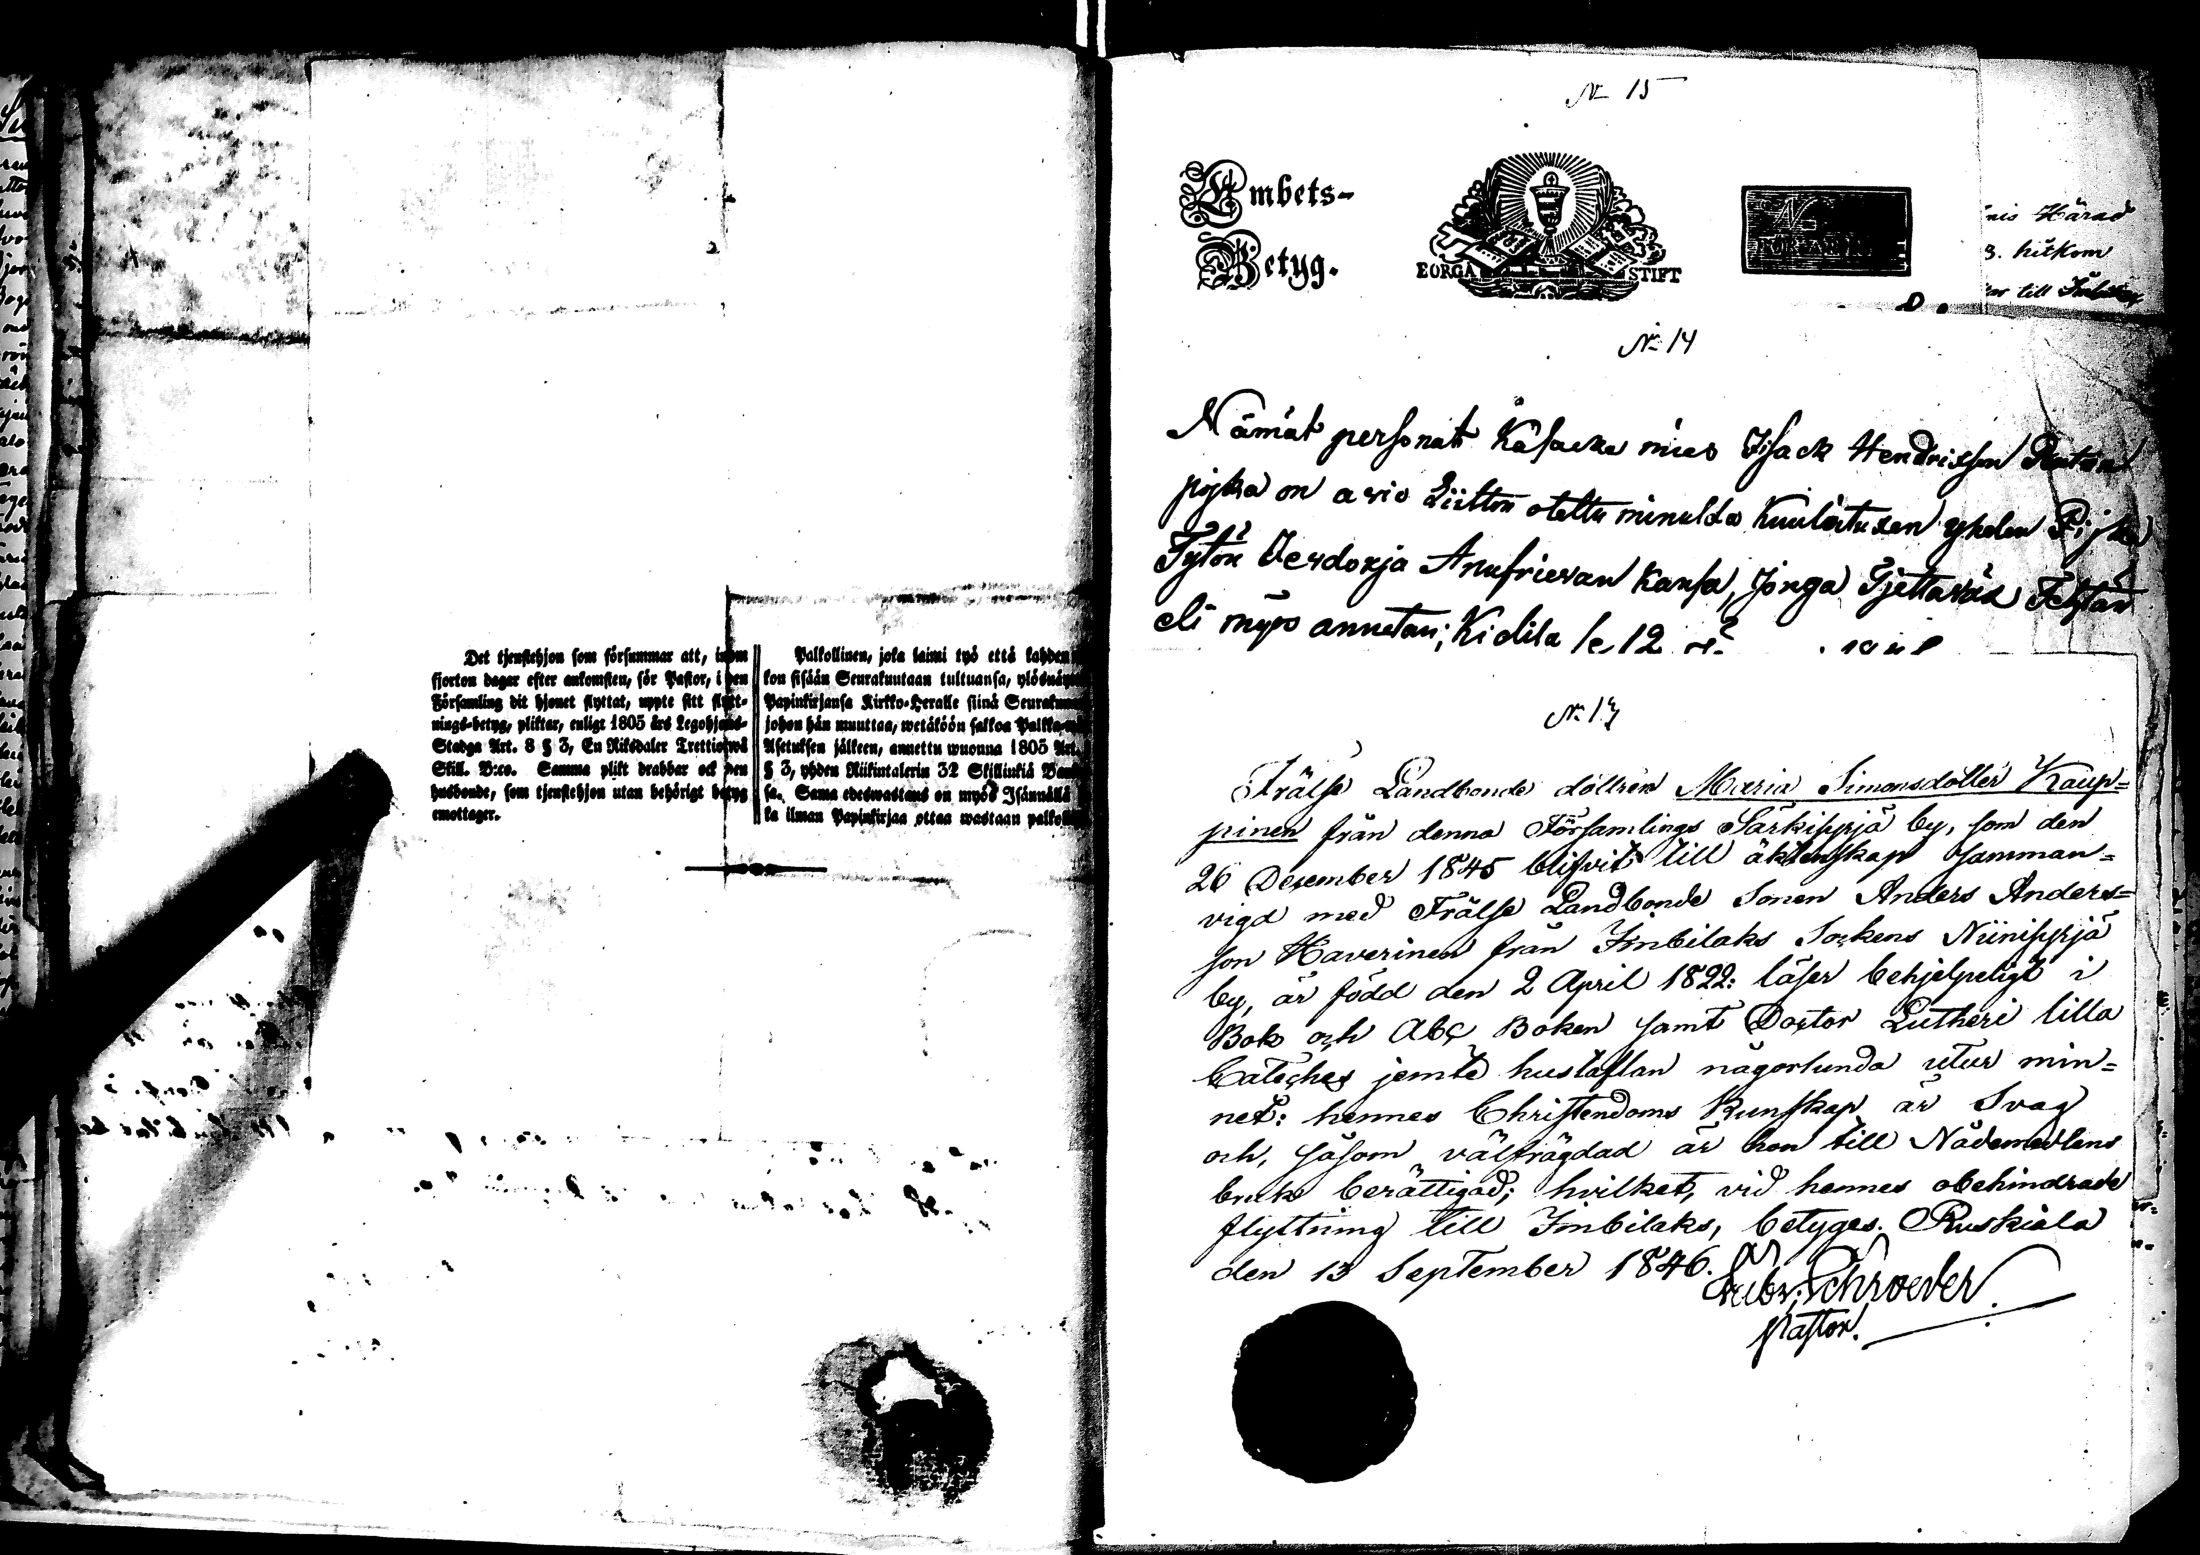 Det tjenstehjon som försummar att, inom
fjorton dagar efter ankomsten, för Pastor, i den
Församling dit hjonet flyttat, uppte sitt flytt-
nings-betyg, pliktar, enligt 1805 års Legohjons-
Stadga Art. 8 § 3, En Riksdaler Trettiotwå
Skill. B:co. Samma plikt drabbar ock den
husbonde, som tjenstehjon utan behörigt betyg
emottager.
Palkollinen, joka laimi työ että kahden
kon sisään Seurakuntaan tultuansa, ylösnäyt
Papinkirjansa Kirkko-Heralle siinä Seurakun
johon hän muuttaa, wetäköön sakkoa Palkka
Asetuksen jälkeen, annettu wuonna 1805 Art.
§ 3, yhden Riikintalerin 32 Skillinkiä Ban
sa. Sama edeswastaus on myös Isännällä
ka ilman Papinkirjaa ottaa wastaan palkol
N 15
Embets-
Betyg.
BORGÅ STIFT
N
nis Härad
3. hitkom
till Imbilax
N 14
Nämät personat Kasacka mies Isack Hendrisson
pojka on asio Liitton otettu minulda Kuulutuxen yhelen Pijka
Tytön Verdorja Anufriewan kansa, Jonga Tjettawäx
eli myös annetan; Kidila le 12
N 13
Frälse Landbonde dottren Maria Simonsdotter Kaup=
pinen från denna Församlings Särkisyrjä by, som den
26 December 1845 blifvit till äktenskap samman=
vigd med Frälse Landbonde Sonen Anders Anders=
son Haverinen från Imbilaks Sockens Niinisyrjä
by, är född den 2 April 1822: läser behjelpeligt i
Bok och Abc Boken samt Doctor Lutheri lilla
Cateches jemte hustaflan någorlunda utur min=
net: hennes Christendoms Kunskap är Svag
och, såsom välfrägdad är hon till Nådemedlens
bruk berättigad; hvilket, vid hennes obehindrade
flyttning till Imbilaks, betyges. Ruskiala
den 13 September 1846.
Schroeder
Pastor.